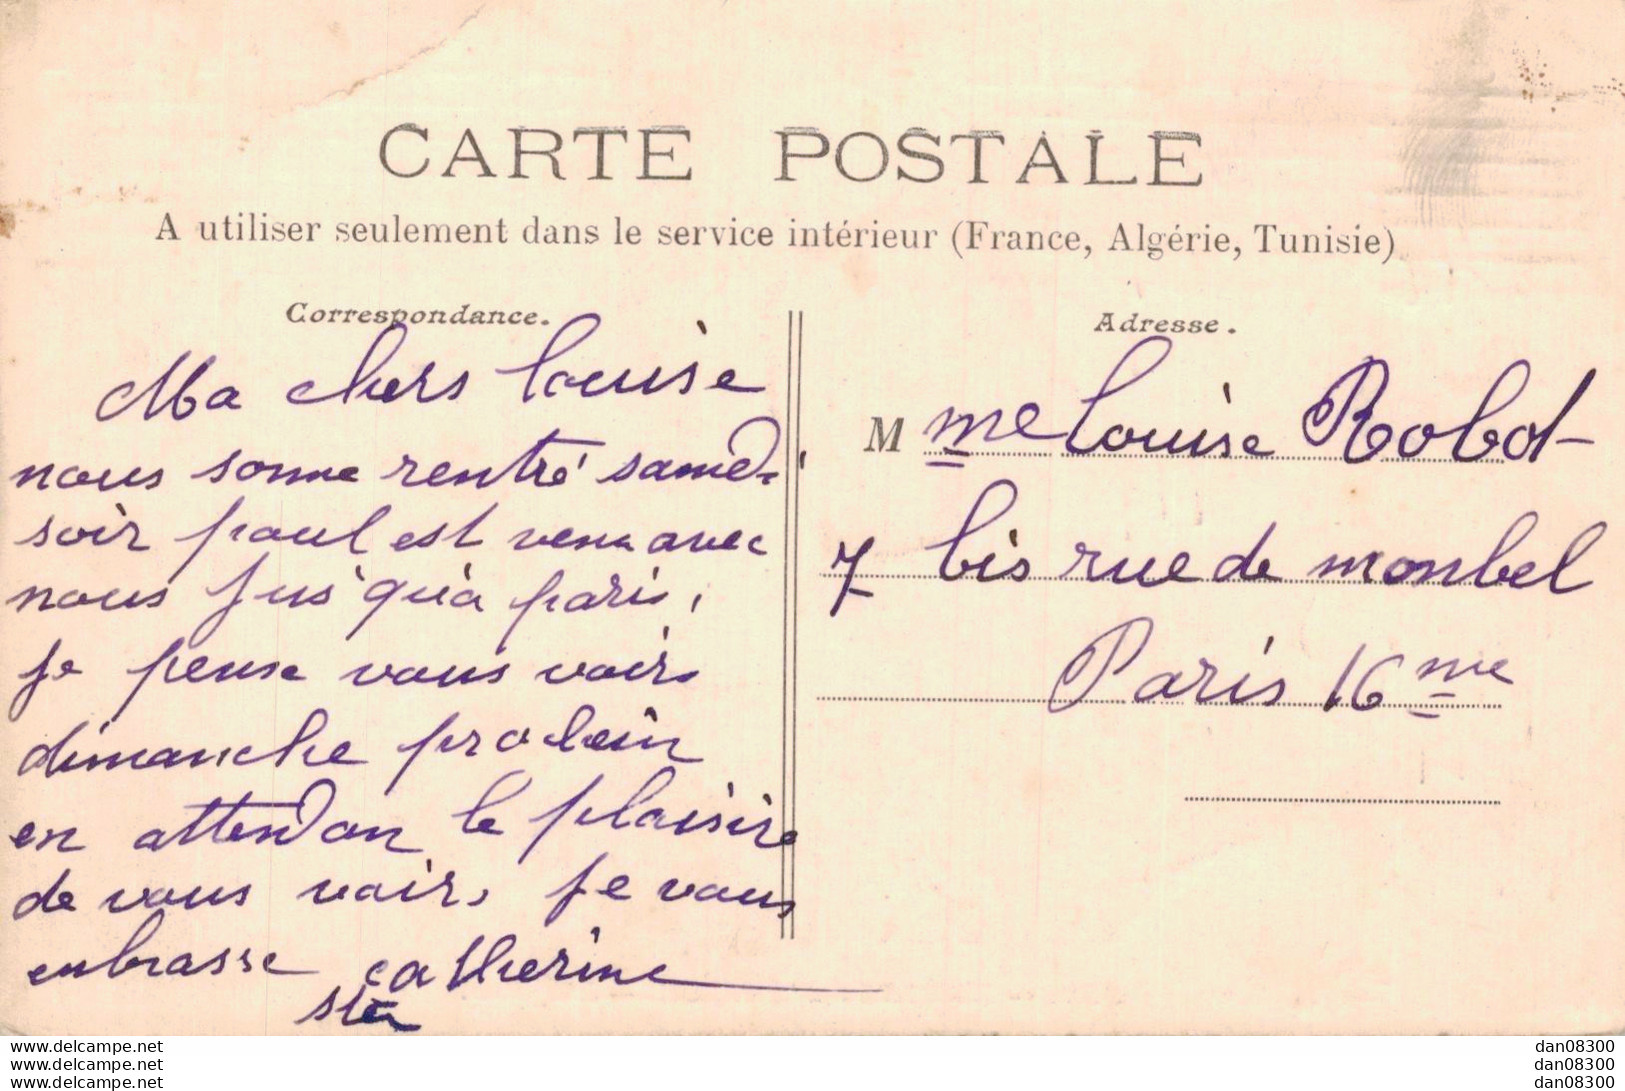 CARTE POSTALE
A utiliser seulement dans le service intérieur (France, Algérie, Tunisie)
Correspondance.
Ma chers Louise
nous somme rentré samedi
soir paul est venu avec
nous jus'qu'a paris,
je pense vous voir
dimanche prochin
en attendan le plaisire
de vous voir, je vous
enbrasse catherine
Adresse.
M me Louise Robot
7 bis rue de monbel
Paris 16 me
www.delcampe.net
www.delcampe.net
www.delcampe.net
dan08300
dan08300
dan08300